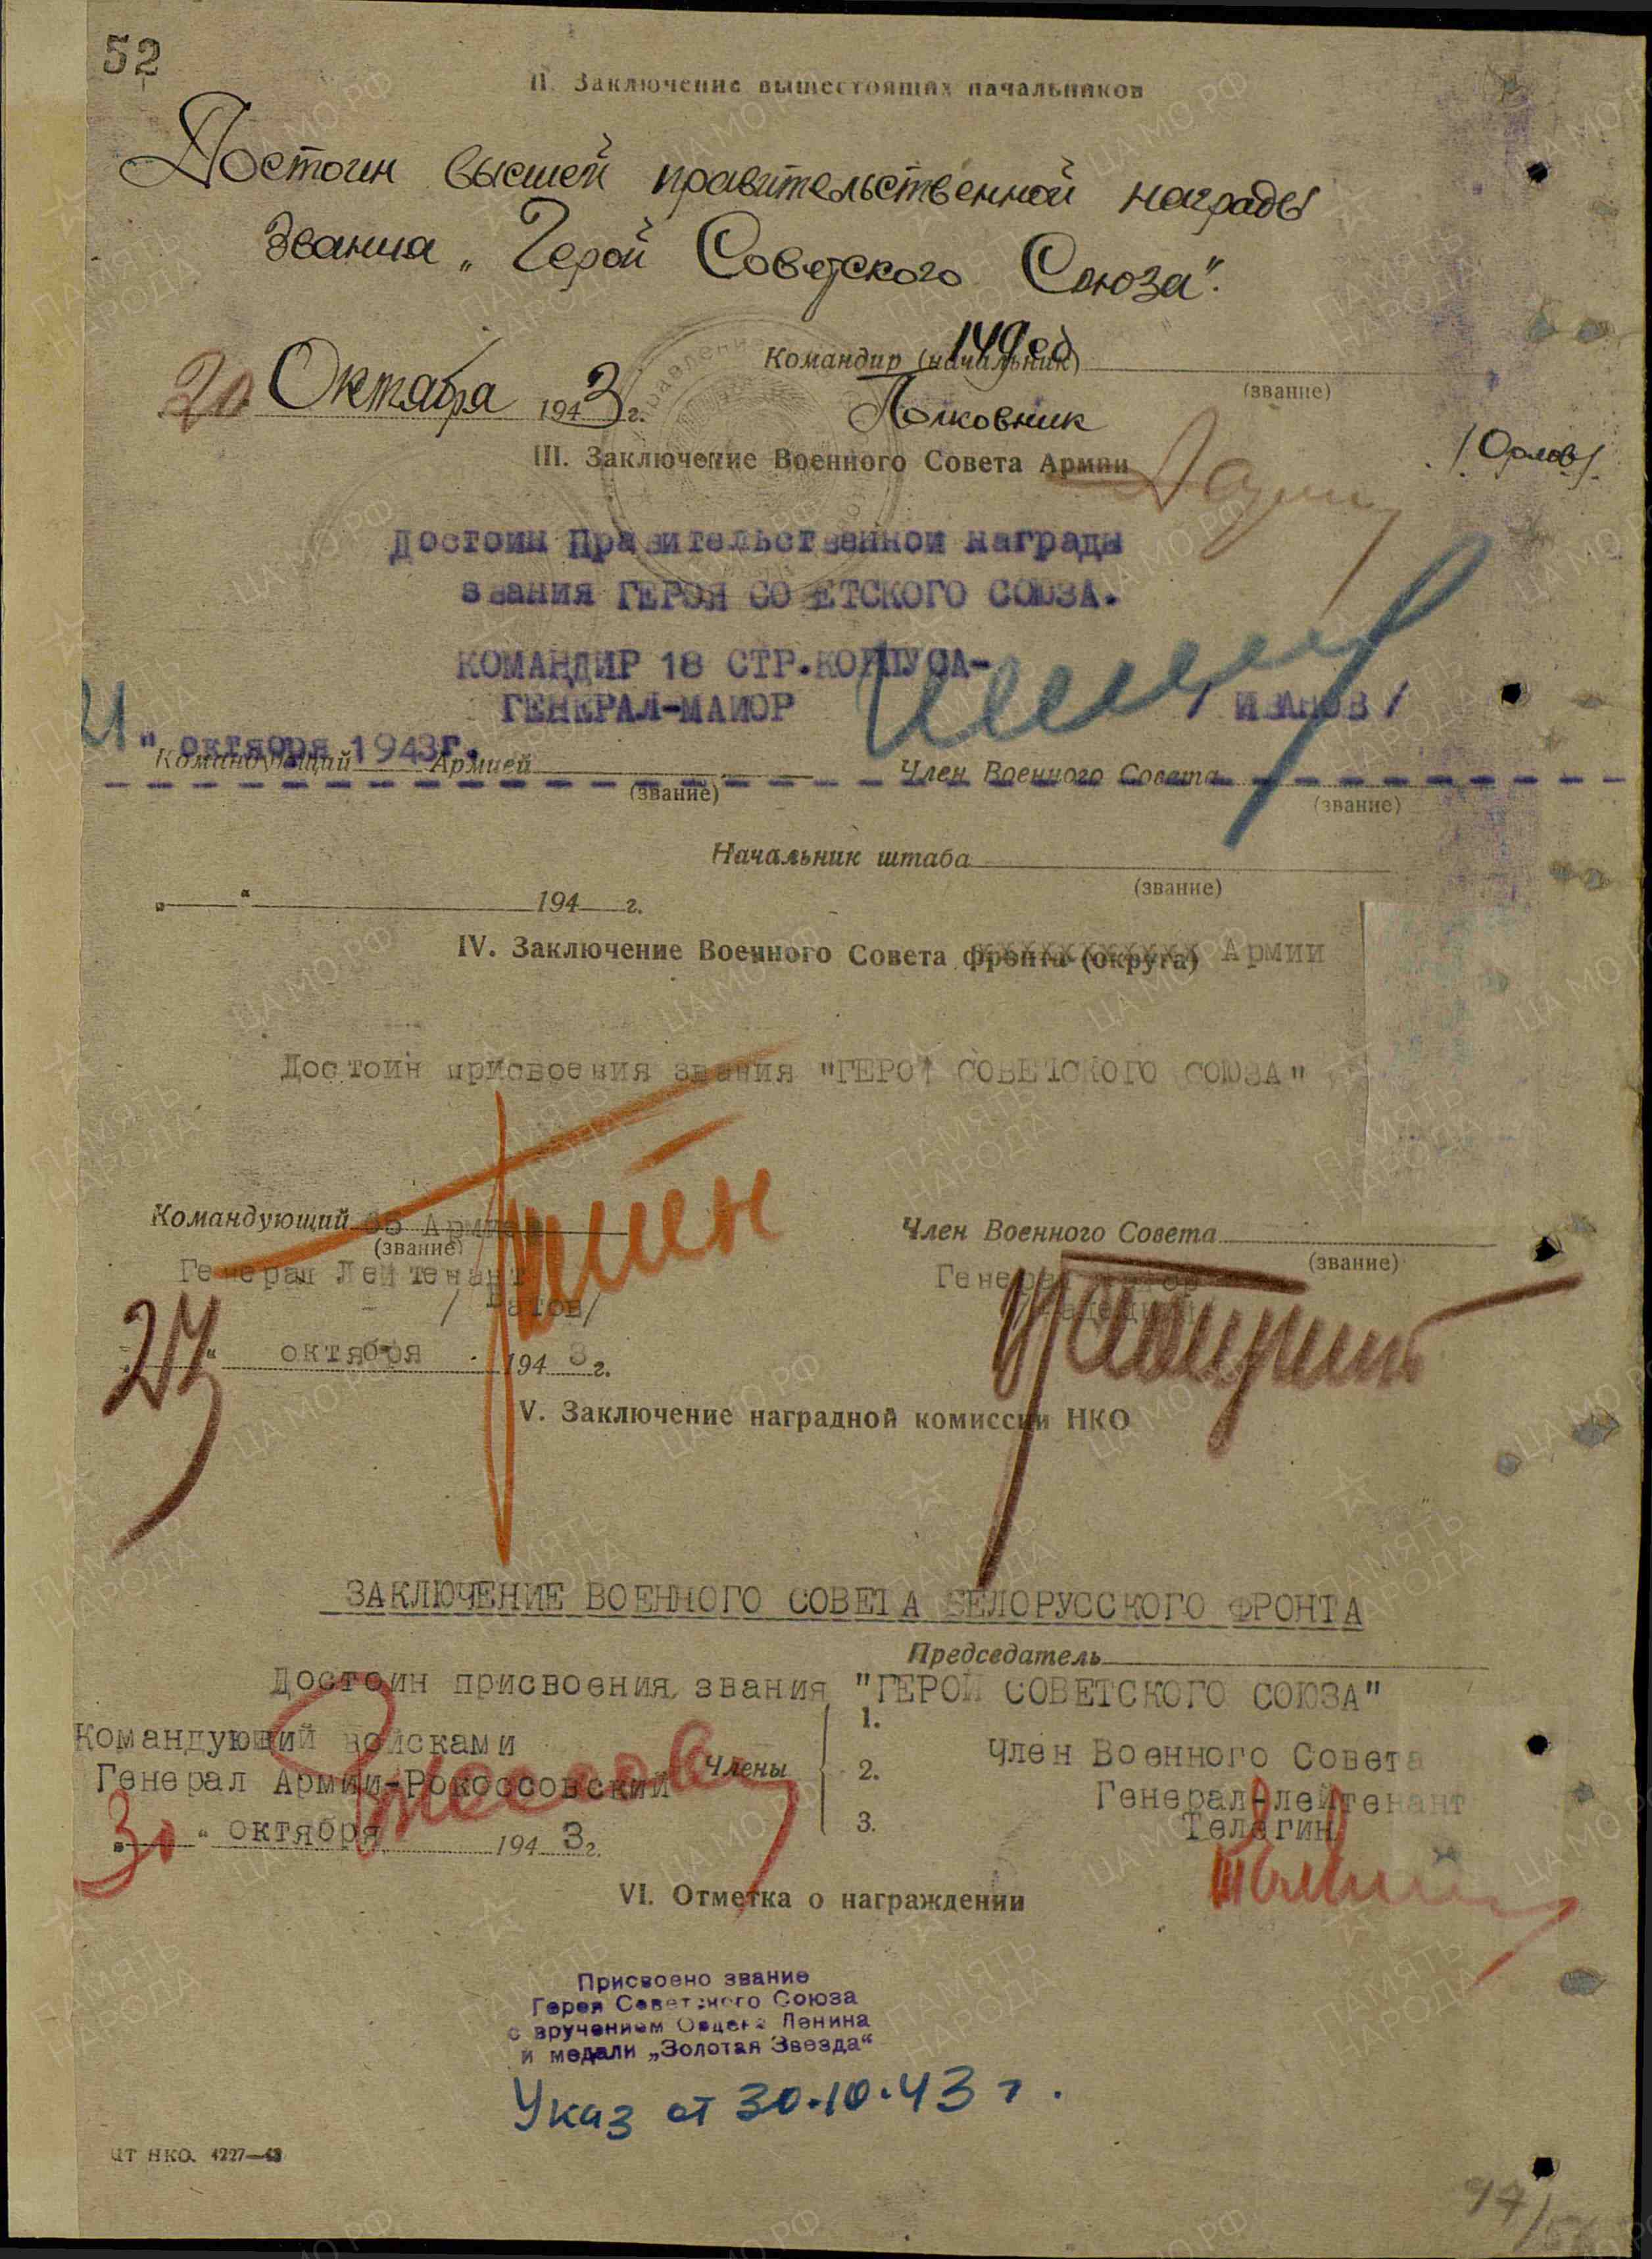 52
II. Заключение вышестоящих начальников
Достоин высшей правительственной награды
звания „Герой Советского Союза".
Командир (начальник) 149 сд
(звание)
20 Октября 1943 г.
Полковник
/Орлов/.
III. Заключение Военного Совета Армии
Достоин Правительственной награды
звания ГЕРОЯ СО ЕТСКОГО СОЮЗА.
КОМАНДИР 18 СТР.КОРПУСА-
ГЕНЕРАЛ-МАЙОР / ИВАНОВ /
21 " октября 1943г.
Командующий Армией Член Военного Совета
(звание) (звание)
Начальник штаба
(звание)
„ “ 194 г.
IV. Заключение Военного Совета фронта (округа) Армии
Достоин присвоения звания "ГЕРОЙ СОВЕТСКОГО СОЮЗА"
Командующий 65 Армией Член Военного Совета
(звание) (звание)
Генерал Лейтенант Генерал
/ Батов/
27 “ октября 1943 г.
V. Заключение наградной комиссии НКО
ЗАКЛЮЧЕНИЕ ВОЕННОГО СОВЕТА БЕЛОРУССКОГО ФРОНТА
Председатель
Достоин присвоения звания "ГЕРОЙ СОВЕТСКОГО СОЮЗА"
1.
Командующий войсками Член Военного Совета
Генерал Армии-Рокоссовский Члены 2. Генерал-лейтенант
„30“ октября 1943 г. 3. Телегин
VI. Отметка о награждении
Присвоено звание
Героя Советского Союза
с вручением Ордена Ленина
и медали „Золотая Звезда“
Указ от 30.10.43 г.
ЦТ НКО. 4227—43